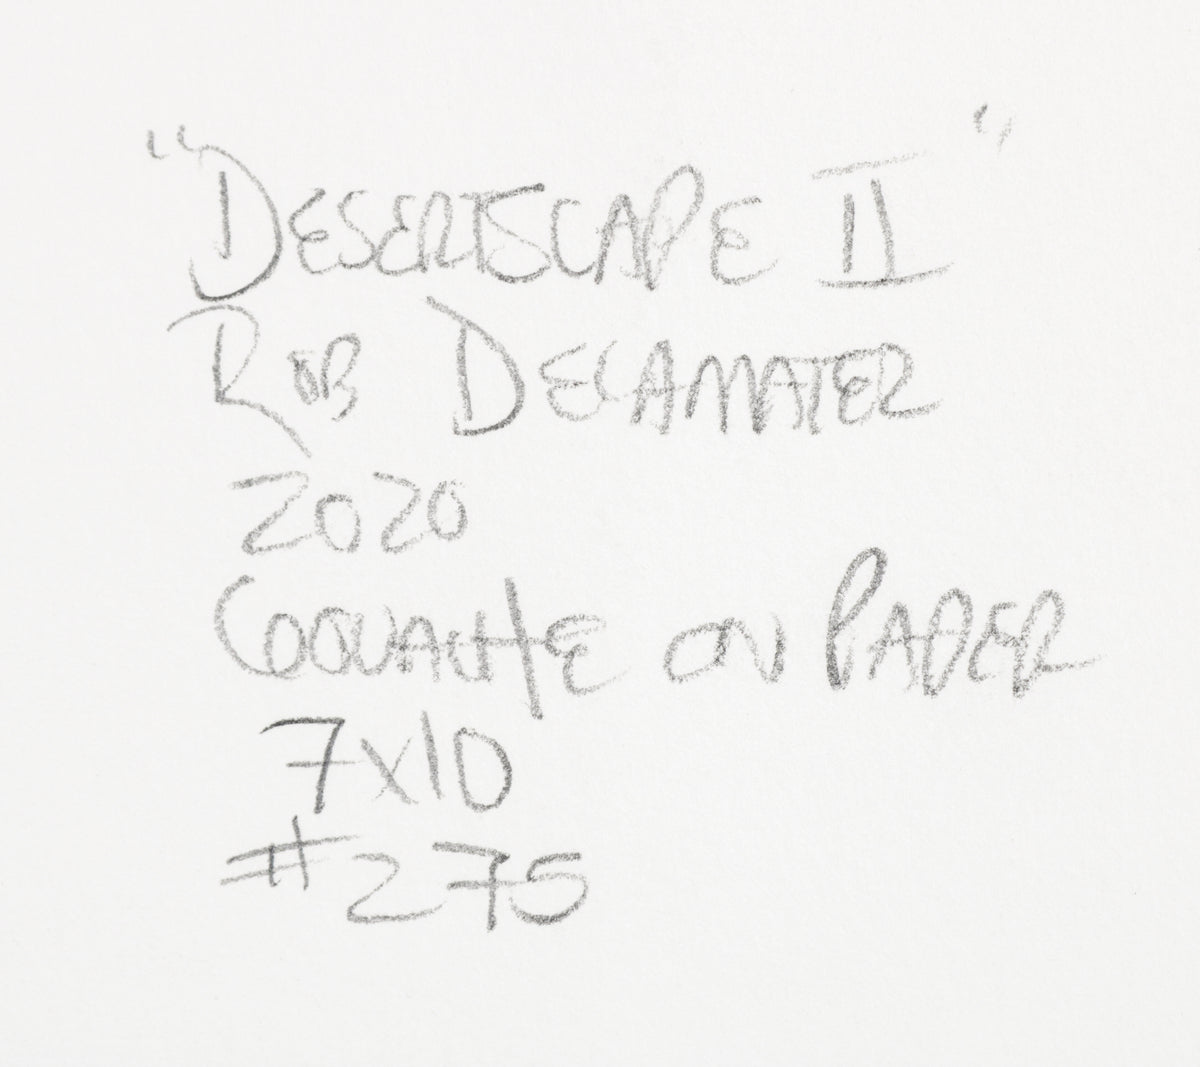 "DESERTSCAPE II"
ROB DELAMATER
2020
GOUACHE ON PAPER
7x10
#275